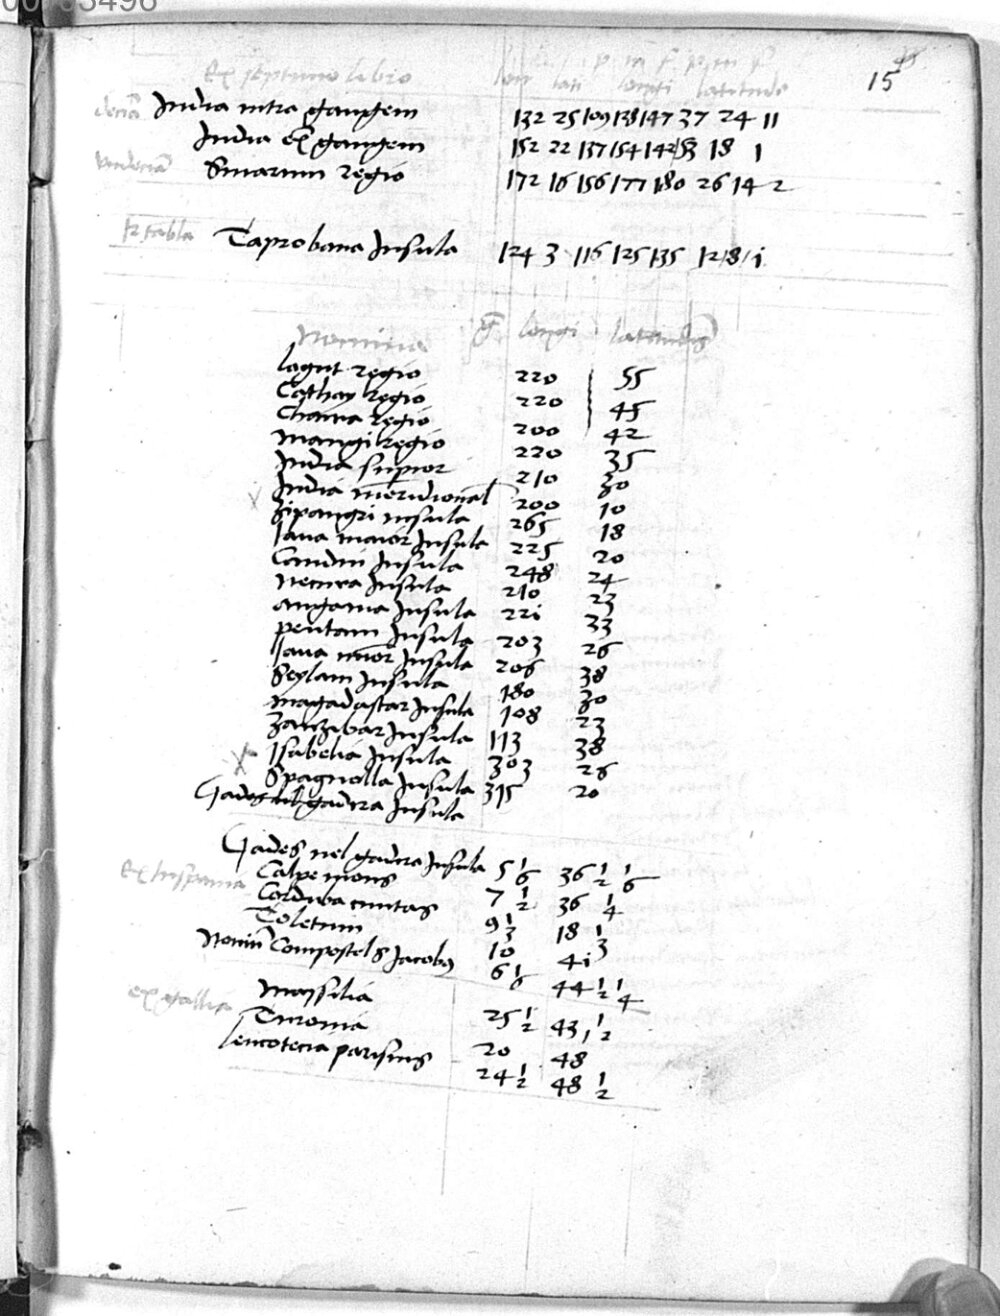 15
Ex septimo libro lon lati longi latitudo
decia India intra gangem 132 25 109 138 147 37 24 11
India ex gangem 152 22 137 154 142 18 1
Sinarum regio 172 16 156 177 180 26 14 2
12 tabla Taprobana Insula 124 3 116 125 135 12 8 1
Nomina longi latitudis
lagut regio 220 55
Cathay regio 220 45
Chaira regio 200 42
Mangi regio 220 35
India superior 210 30
India meridional 200 10
Zipangri insula 265 18
Iava maior Insula 225 20
Candin Insula 248 24
necura Insula 210 23
angama Insula 221 33
pentam Insula 203 26
Iava minor Insula 206 38
Seylam Insula 180 30
magadastar Insula 108 23
Zanzibar Insula 113 38
Isabelia Insula 303 26
Spagnolla Insula 315 20
Gades vel gadira Insula
Gades vel gadira Insula 5 1/6 36 1/2 1/6
ex hispania Calpe mons 7 1/2 36 1/4
Corduba civitas 9 1/3 18 1/3
Toletum 10 41
Compostel S Jacobus 6 1/6 44 1/2 1/4
ex gallia Massilia 25 1/2 43 1/2
Turonia 20 48
leucotecia parisius 24 1/2 48 1/2